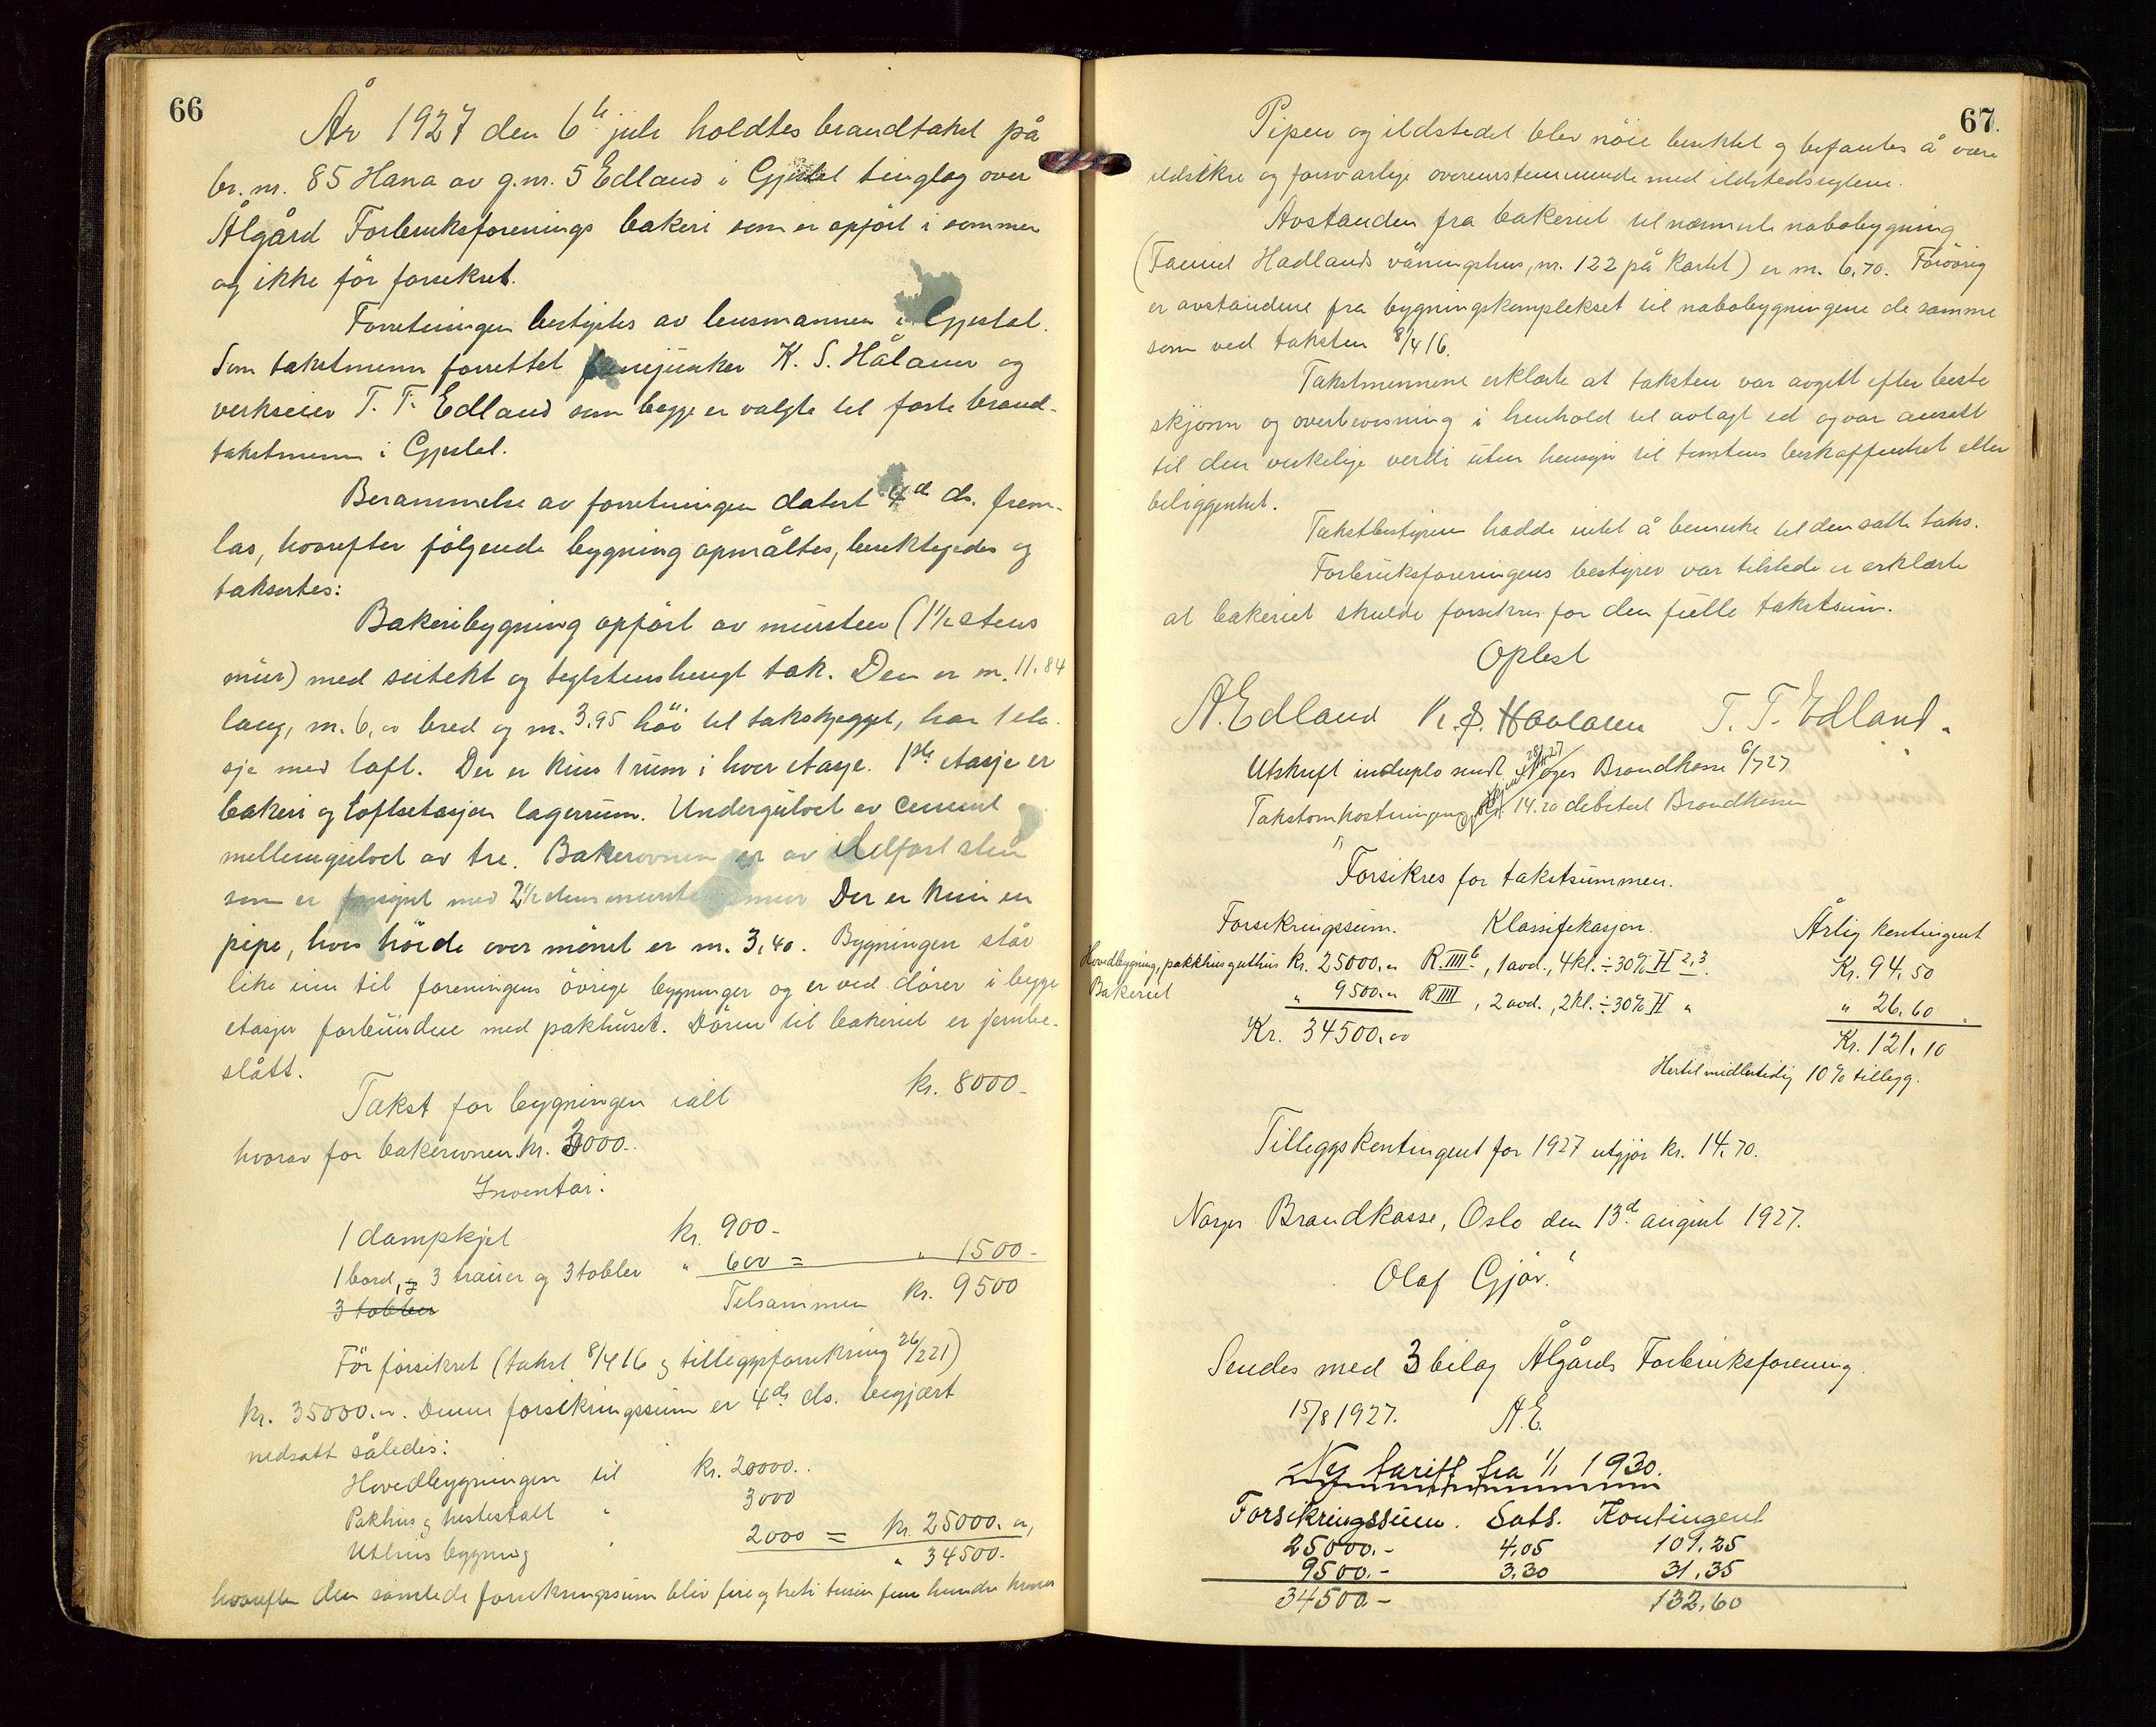 66
År 1927 den 6te juli holdtes brandtakst på
br. nr. 85 Hana av g.nr. 5 Edland i Gjestal tinglag over
Ålgård Forbruksforenings bakeri som er opført i sommer
og ikke før forsikret.
Forretningen bestyrtes av lensmannen i Gjestal.
Som takstmenn forrettet K. S. Hålann og
verkseier T. T. Edland som begge er valgte til faste brand-
takstmenn i Gjestal.
Berammelse av forretningen datert 4de ds. frem-
las, hvorefter følgende bygning opmåltes, besiktigedes og
taksertes:
Bakeribygning opført av mursten (1½ stens
mur) med sutekt og teglstenshengt tak. Den er m. 11.84
lang, m. 6,00 bred og m. 3,95 høi til takskjegget, har 1 eta-
sje med loft. Der er kun 1 rum i hver etasje. 1ste etasje er
bakeri og loftsetasjen lagerrum. Undergulvet av cement
mellemgulvet av tre. Bakerovnen er av ildfast sten
som er forsynt med 2½ stens murstensmur Der er kun en
pipe, hvis høide over mønet er m. 3,40. Bygningen står
like inn til foreningens øvrige bygninger og er ved dører i begge
etasjer forbundne med pakhuset. Døren til bakeriet er jernbe-
slått.
Takst for bygningen ialt kr. 8000-
hvorav for bakerovnen kr. 3000.-
Inventar:
1 dampkjel kr. 900-
1 bord, 3 trauer og 3 tabler " 600 = " 1500-
3 tabler Tilsammen kr. 9500
Før forsikret (takst 8/4 16 og tilleggsforsikring 26/2 21)
kr. 35000.00. Denne forsikringssum er 4de ds. begjært
nedsatt således:
Hovedbygningen til kr. 20000..
Pakhus og hestestall " 3000
Uthusbygning " 2000 = kr. 25000.00,
" 34500.
hvorefter den samlede forsikringssum blir fire og treti tusen fem hundre kroner
67.
Pipen og ildstedet blev nøie besiktet og befantes å være
ildsikre og forsvarlige overensstemmende med ildstedsreglene.
Avstanden fra bakeriet til nærmeste nabobygning
(Hadlands våningshus, nr. 122 på kartet) er m. 6,70. Forøvrig
er avstandene fra bygningskomplekset til nabobygningene de samme
som ved taksten 8/4 16.
Takstmennene erklærte at taksten var avgitt efter beste
skjønn og overbevisning i henhold til avlagt ed og var ansatt
til den virkelige verdi uten hensyn til tomtens beskaffenhet eller
beliggenhet.
Takstbestyreren hadde intet å bemerke til den satte takst.
Forbruksforeningens bestyrer var tilstede og erklærte
at bakeriet skulde forsikres for den fulle takstsum.
Oplest
A. Edland K. S. Haalann T. T. Edland.
Utskrift in duplo sendt Norges Brandkasse 6/7 27
Takstomkostningene kr. 14.20 debitert Brandkassen
"Forsikres for takstsummen.
Forsikringssum. Klassifikasjon. Årlig kontingent
Hovedbygning, pakkhus og uthus kr. 25000.00 R. IIII b, 1 avd., 4 kl. ÷ 30% H 2,3. Kr. 94,50
Bakeriet " 9500.00 R IIII, 2 avd., 2 kl. ÷ 30% H " " 26,60
Kr. 34500,00 Kr. 121,10
Hertil midlertidig 10% tillegg.
Tilleggskontingent for 1927 utgjør kr. 14,70.
Norges Brandkasse, Oslo den 13de august 1927.
Olaf Gjør."
Sendes med 3 bilag Ålgårds Forbruksforening.
15/8 1927. A.E.
Ny tariff fra 1/1 1930.
Forsikringssum. Sats. Kontingent
25000.- 4,05 101,25
9500.- 3,30 31,35
34500.- 132,60